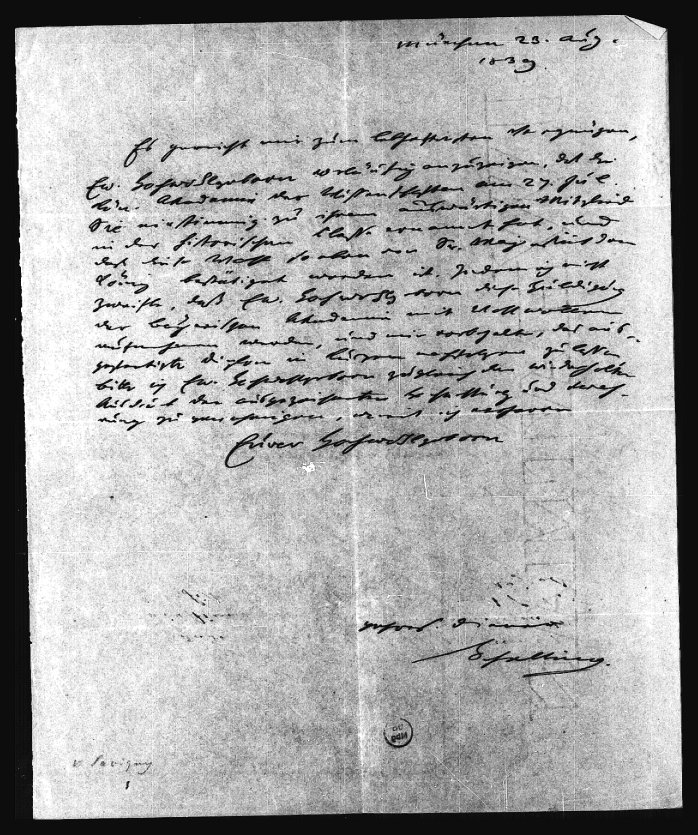 München 23. Aug.
1839.
Es gereicht mir zum lebhaftesten Vergnügen,
Ew. Hochwohlgeboren vorläufig anzuzeigen, daß die
kön. Akademie der Wissenschaften am 27. Jul.
Sie einstimmig zu ihrem auswärtigen Mitglied
in der historischen Classe ernannt hat, und
daß diese Wahl so eben von Sr. Majestät dem
König bestätigt worden ist. Indem ich nicht
zweifle, daß Ew. Hochwohlgeboren diese Huldigung
der bayrischen Akademie mit Wohlwollen
aufnehmen werden, und mir vorbehalte, das aus-
gefertigte Diplom in kurzem nachfolgen zu lassen
bitte ich Ew. Hochwohlgeboren zugleich den wiederholten
Ausdruck der ausgezeichnetsten Hochachtung und Vereh-
rung zu genehmigen, womit ich verharre
Euer Hochwohlgeboren
gehors. Diener
Schelling.
v. Savigny
1